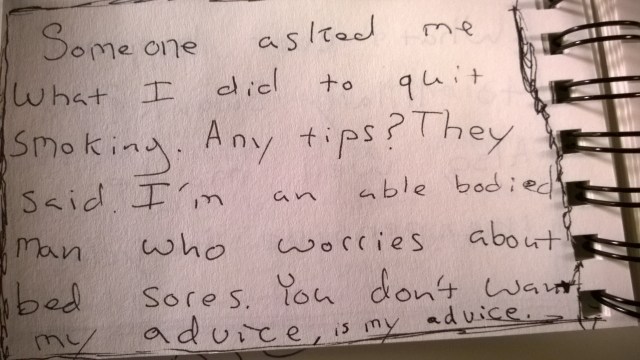 Someone asked me
What I did to quit
smoking. Any tips? They
said. I'm an able bodied
man who worries about
bed sores. You don't want
my advice, is my advice.